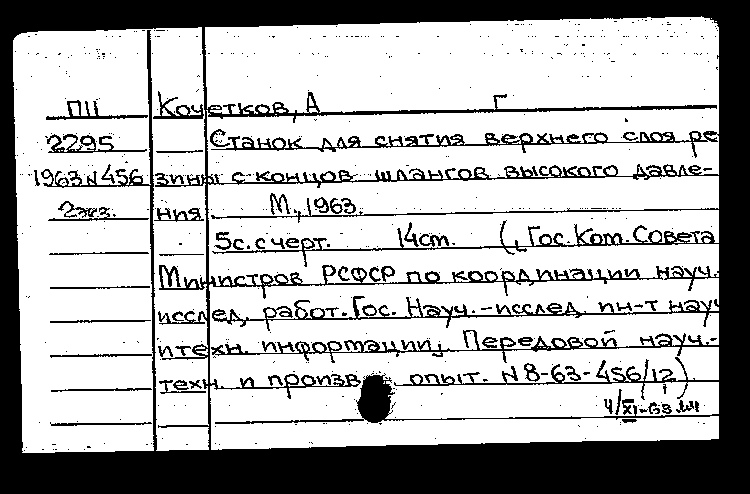 П11 Кочетков, А Г
2295 Станок для снятия верхнего слоя ре
1963 N 456 зины с концов шлангов высокого давле-
2экз. ния. М., 1963.
5с. с черт. 14cm. (, Гос. Ком. Совета
Министров РСФСР по координации науч.
исслед. работ. Гос. Науч.-исслед. ин-т науч
и техн. информации, Передовой науч.-
техн. и произв. опыт. N 8-63-456/12)
4/XI-63